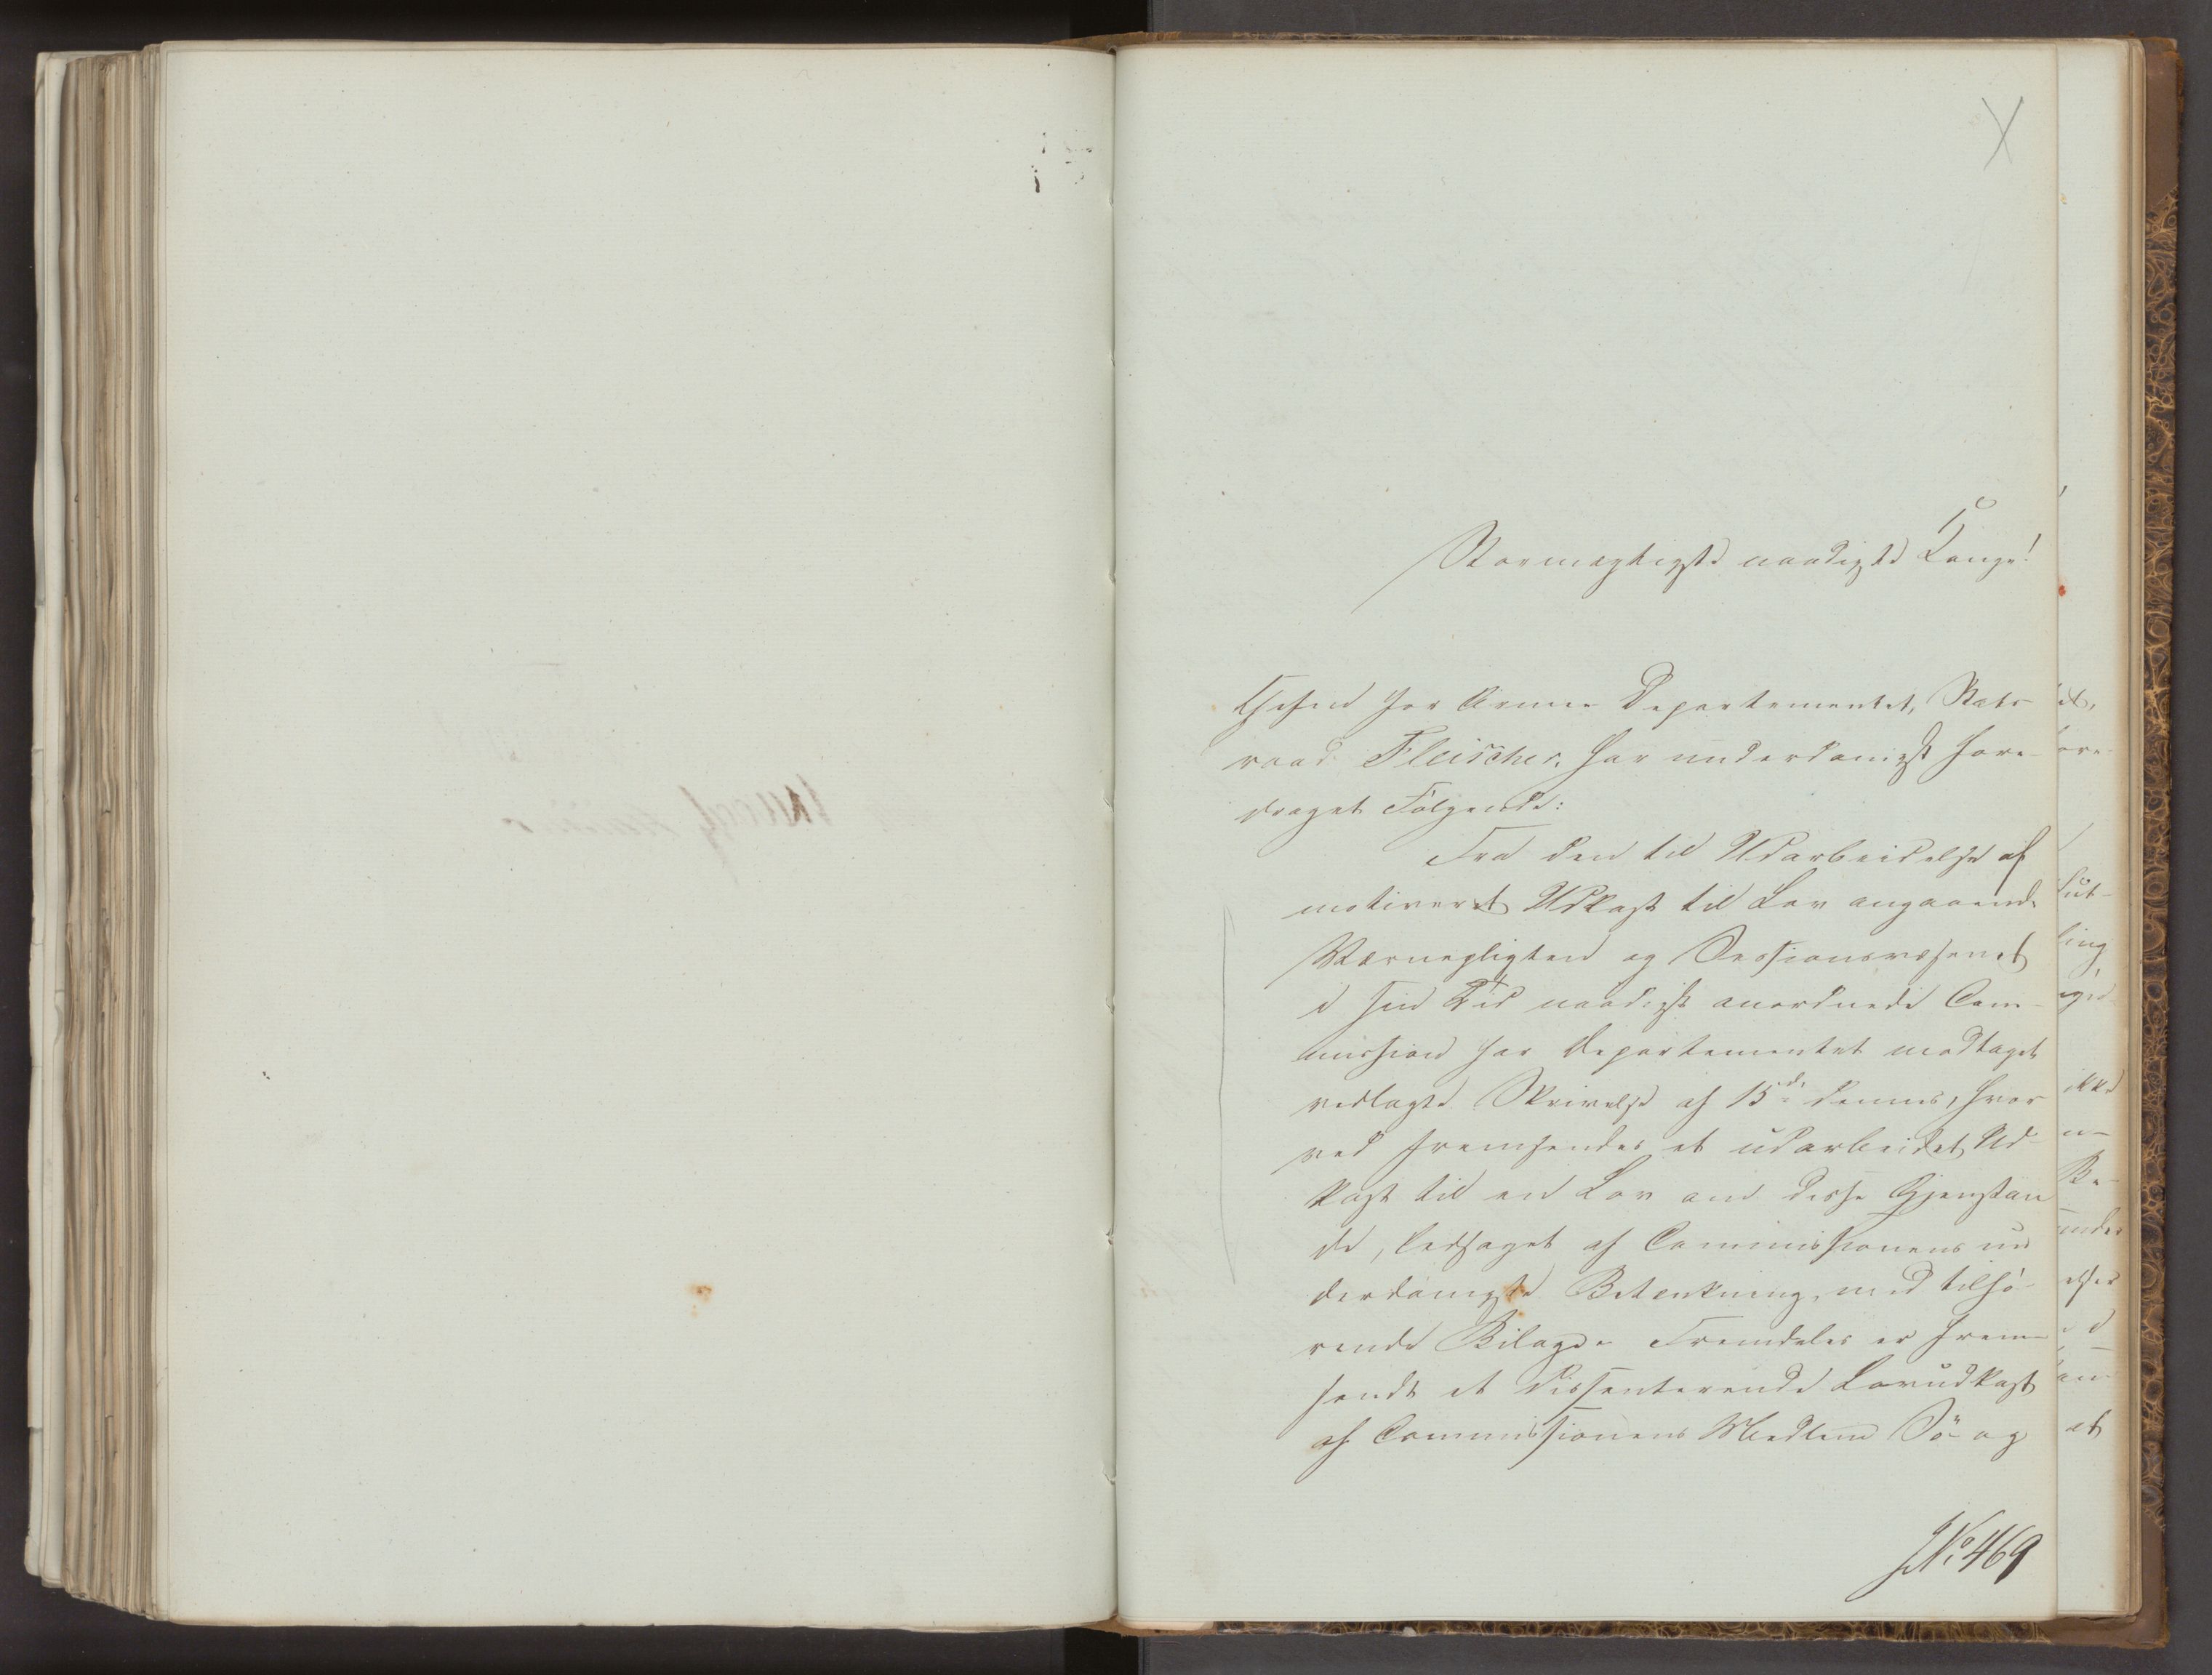 Stormægtigste naadigste Konge!
Chefen for Armee Departementet, Stats-
raad Fleischer, har underdanigst fore-
draget Følgende:
Fra den til Udarbeidelse af
motiveret Udkast til Lov angaaende
Værnepligten og Sessionsvæsenet
i sin Tid naadigst anordnede Com-
mission har Departementet modtaget
vedlagte Skrivelse af 15de dennes, hvor
ved fremsendes et udarbeidet Ud-
kast til en Lov om disse Gjenstan
de, ledsaget af Commissionens un
derdanigste Betænkning, med tilhø-
rende Bilage. Fremdeles er frem-
sendt et dissenterende Lovudkast
af Commissionens Medlem Sø- og
JNo 469